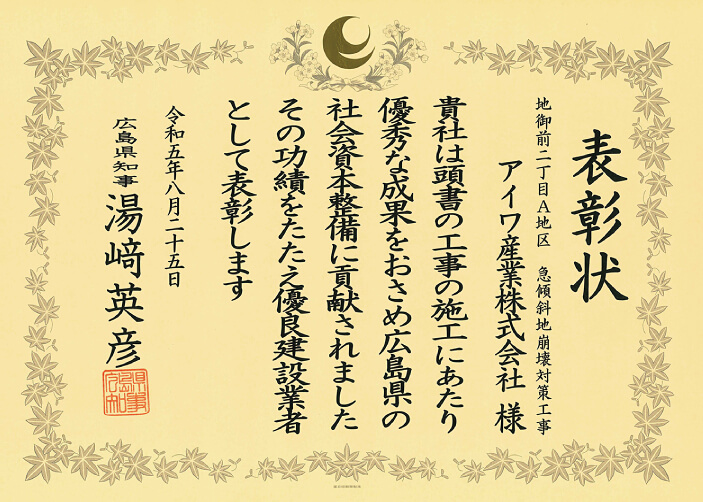 表彰状
地御前二丁目A地区 急傾斜地崩壊対策工事
アイワ産業株式会社 様
貴社は頭書の工事の施工にあたり
優秀な成果をおさめ広島県の
社会資本整備に貢献されました
その功績をたたえ優良建設業者
として表彰します
令和五年八月二十五日
広島県知事 湯﨑英彦
広島県知事